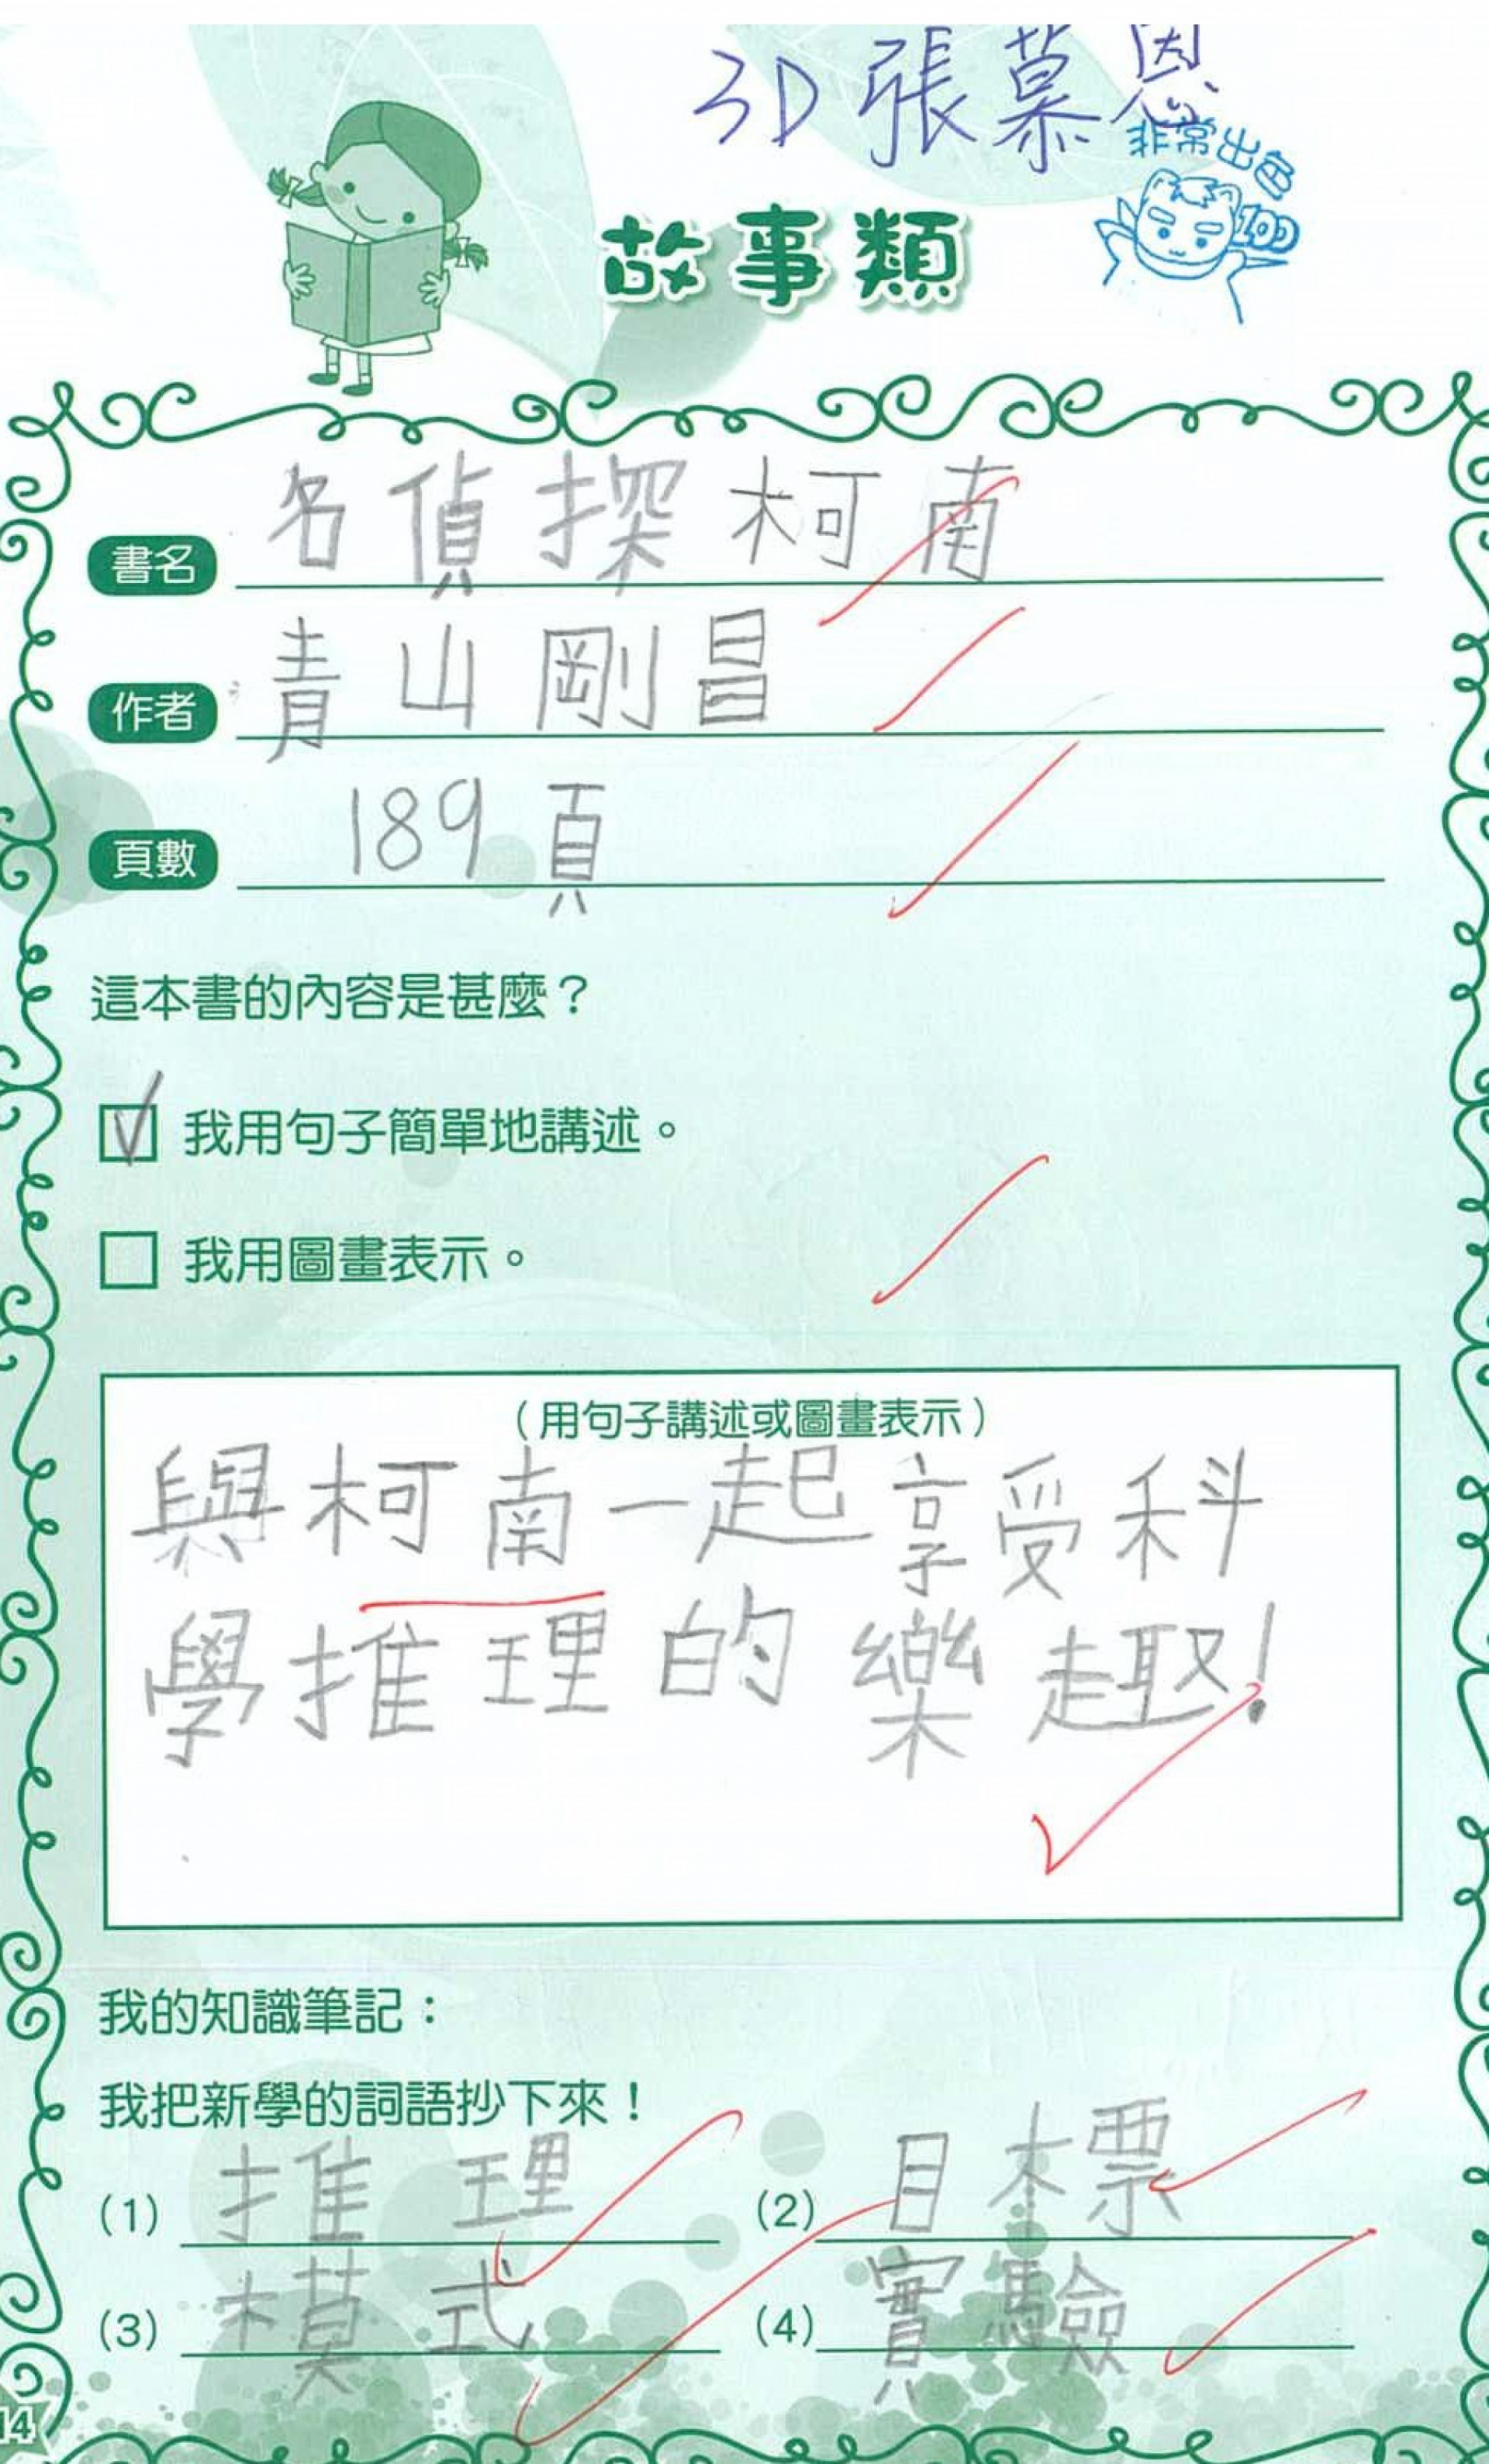 3D 張慕恩
非常出色
100
故事類
書名 名偵探柯南
作者 青山剛昌
頁數 189頁
這本書的內容是甚麼？
我用句子簡單地講述。
我用圖畫表示。
（用句子講述或圖畫表示）
與柯南一起享受科
學推理的樂趣！
我的知識筆記：
我把新學的詞語抄下來！
(1) 推理 (2) 目標
(3) 模式 (4) 實驗
14